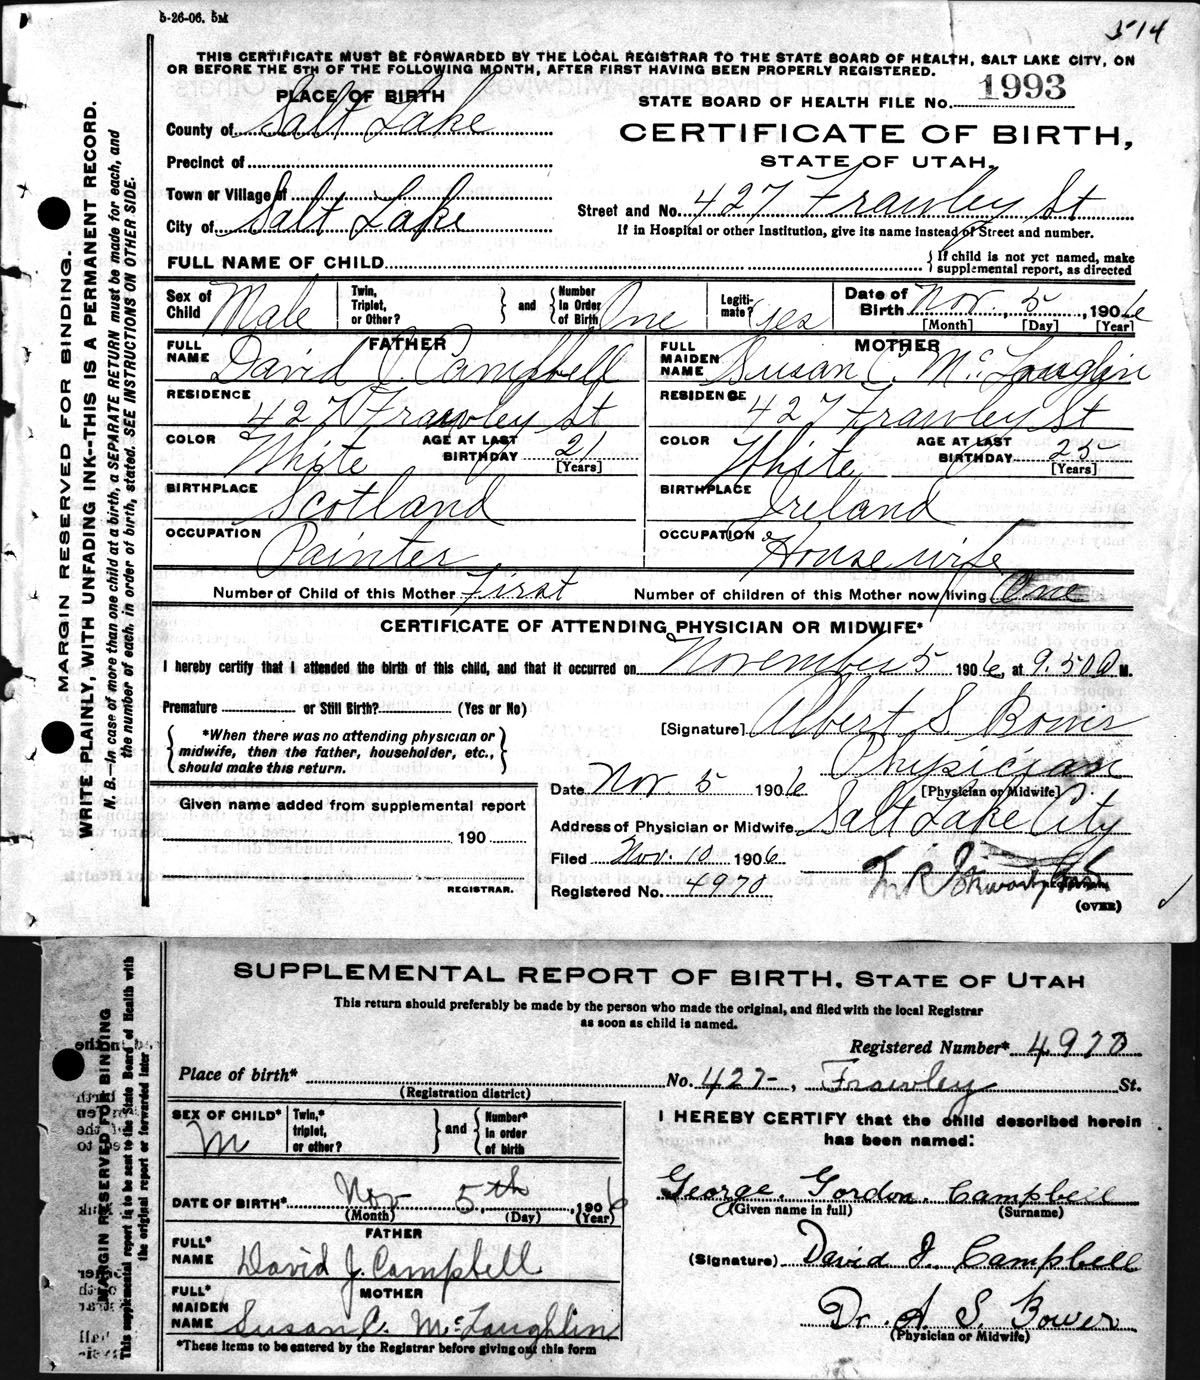 5-26-06. 5M
514
THIS CERTIFICATE MUST BE FORWARDED BY THE LOCAL REGISTRAR TO THE STATE BOARD OF HEALTH, SALT LAKE CITY, ON
OR BEFORE THE 5TH OF THE FOLLOWING MONTH, AFTER FIRST HAVING BEEN PROPERLY REGISTERED.
PLACE OF BIRTH
STATE BOARD OF HEALTH FILE No. 1993
County of Salt Lake
CERTIFICATE OF BIRTH,
Precinct of
STATE OF UTAH.
Town or Village of
Street and No. 427 Frawley St
City of Salt Lake
If in Hospital or other Institution, give its name instead of Street and number.
FULL NAME OF CHILD
If child is not yet named, make
supplemental report, as directed
Sex of Child Male
Twin, Triplet, or Other? and Number in Order of Birth One
Legitimate? yes
Date of Birth Nov. 5, 1906
[Month] [Day] [Year]
FATHER
FULL NAME David J. Campbell
RESIDENCE 427 Frawley St
COLOR White AGE AT LAST BIRTHDAY 21 [Years]
BIRTHPLACE Scotland
OCCUPATION Painter
MOTHER
FULL MAIDEN NAME Susan C. McLaughlin
RESIDENCE 427 Frawley St
COLOR White AGE AT LAST BIRTHDAY 25 [Years]
BIRTHPLACE Ireland
OCCUPATION Housewife
Number of Child of this Mother First Number of children of this Mother now living One
CERTIFICATE OF ATTENDING PHYSICIAN OR MIDWIFE*
I hereby certify that I attended the birth of this child, and that it occurred on November 5 1906, at 9.50 M.
Premature or Still Birth? (Yes or No)
[Signature] Albert S. Bower
*When there was no attending physician or
midwife, then the father, householder, etc.,
should make this return.
Physician
[Physician or Midwife]
Date Nov. 5 1906
Given name added from supplemental report
190
REGISTRAR.
Address of Physician or Midwife Salt Lake City
Filed Nov. 10 1906
Registered No. 4970
(OVER)
MARGIN RESERVED FOR BINDING.
WRITE PLAINLY, WITH UNFADING INK--THIS IS A PERMANENT RECORD.
N. B.—In case of more than one child at a birth, a SEPARATE RETURN must be made for each, and
the number of each, in order of birth, stated. SEE INSTRUCTIONS ON OTHER SIDE.
SUPPLEMENTAL REPORT OF BIRTH, STATE OF UTAH
This return should preferably be made by the person who made the original, and filed with the local Registrar
as soon as child is named.
Registered Number* 4970
Place of birth* No. 427-, Frawley St.
(Registration district)
SEX OF CHILD* M
Twin,* triplet, or other? and Number* in order of birth
I HEREBY CERTIFY that the child described herein
has been named:
DATE OF BIRTH* Nov 5th, 1906
(Month) (Day) (Year)
George Gordon Campbell
(Given name in full) (Surname)
FATHER
FULL* NAME David J. Campbell
(Signature) David J. Campbell
MOTHER
FULL* MAIDEN NAME Susan C. McLaughlin
Dr. A. S. Bower
(Physician or Midwife)
*These items to be entered by the Registrar before giving out this form
MARGIN RESERVED FOR BINDING
This supplemental report is to be sent to the State Board of Health with
the original report or forwarded later